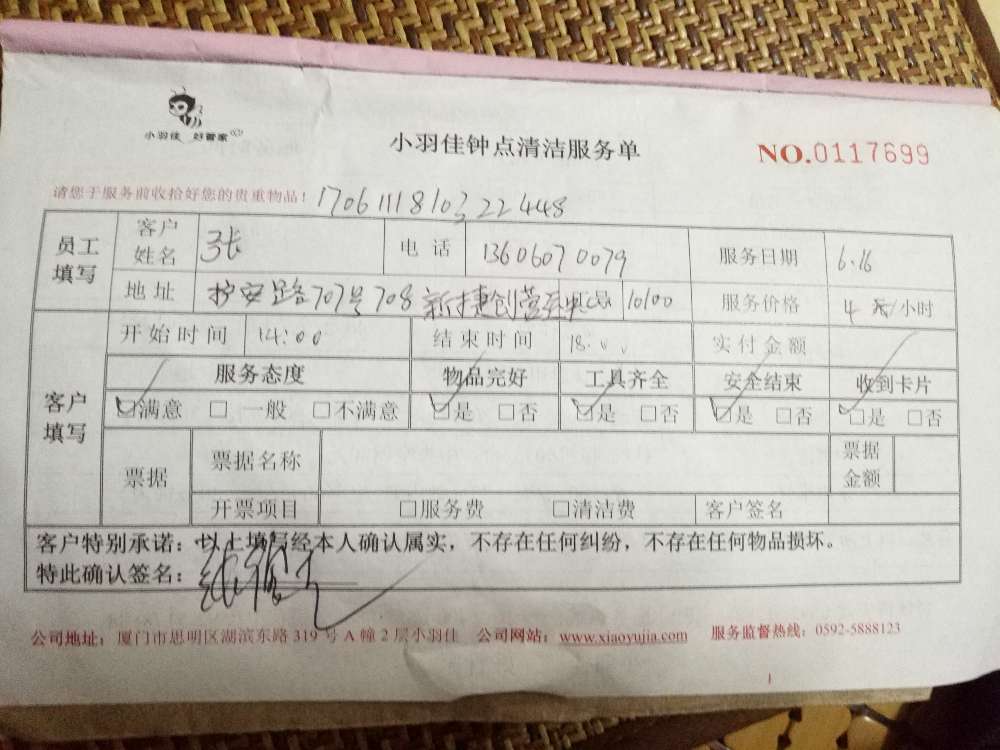 小羽佳 好管家
小羽佳钟点清洁服务单
NO.0117699
请您于服务前收拾好您的贵重物品！
员工填写 客户姓名 张 电话 13606070079 服务日期 6.16
地址 护安路707号708 新捷创营 10100 服务价格 4 元/小时
客户填写 开始时间 14:00 结束时间 18:00 实付金额
服务态度 物品完好 工具齐全 安全结束 收到卡片
☑满意 □一般 □不满意 ☑是 □否 ☑是 □否 ☑是 □否 ☑是 □否
票据 票据名称 票据金额
开票项目 □服务费 □清洁费 客户签名
客户特别承诺：以上填写经本人确认属实，不存在任何纠纷，不存在任何物品损坏。
特此确认签名：
公司地址：厦门市思明区湖滨东路 319 号 A 幢 2 层小羽佳 公司网站：www.xiaoyujia.com 服务监督热线：0592-5888123
1